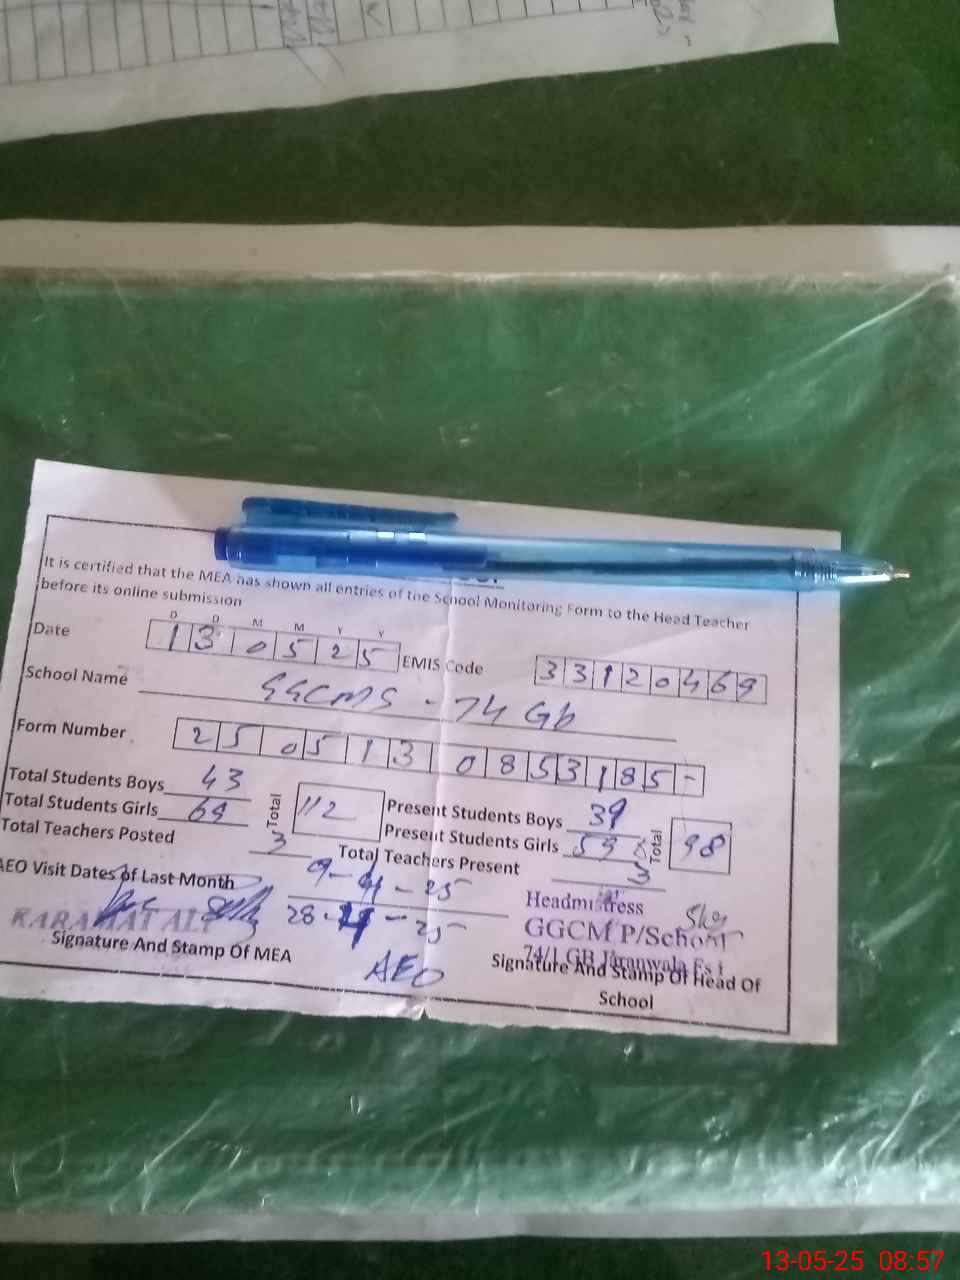 It is certified that the MEA has shown all entries of the School Monitoring Form to the Head Teacher
before its online submission
D D M M Y Y
Date 13 05 25 EMIS Code 33120469
School Name GGCMS - 74 Gb
Form Number 25 05 13 0853185-
Total Students Boys 43
Total Students Girls 69
Total 112
Present Students Boys 39
Present Students Girls 59
Total 98
Total Teachers Posted 3
Total Teachers Present 3
AEO Visit Dates of Last Month 9-4-25
28-4-25
KARAMAT ALI
Signature And Stamp Of MEA
AEO
Headmistress
GGCM P/School
74/1 GB Jaranwala
Signature And Stamp Of Head Of
School
13-05-25 08:57